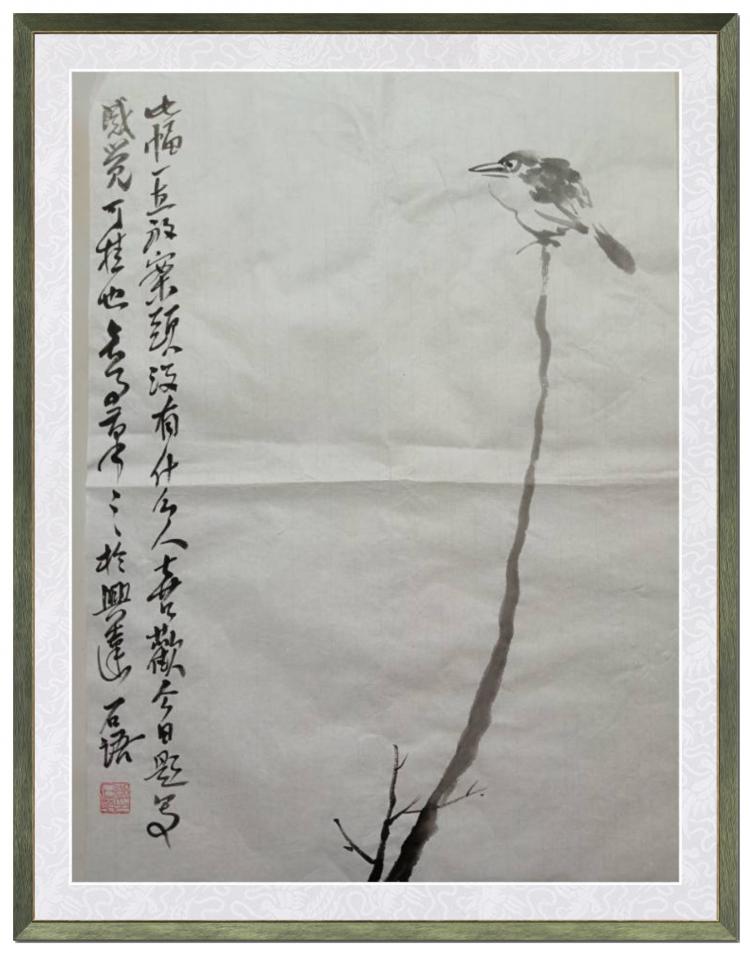 此幅一直放案頭没有什么人喜歡今日題写
感觉可挂也 於興達 石語